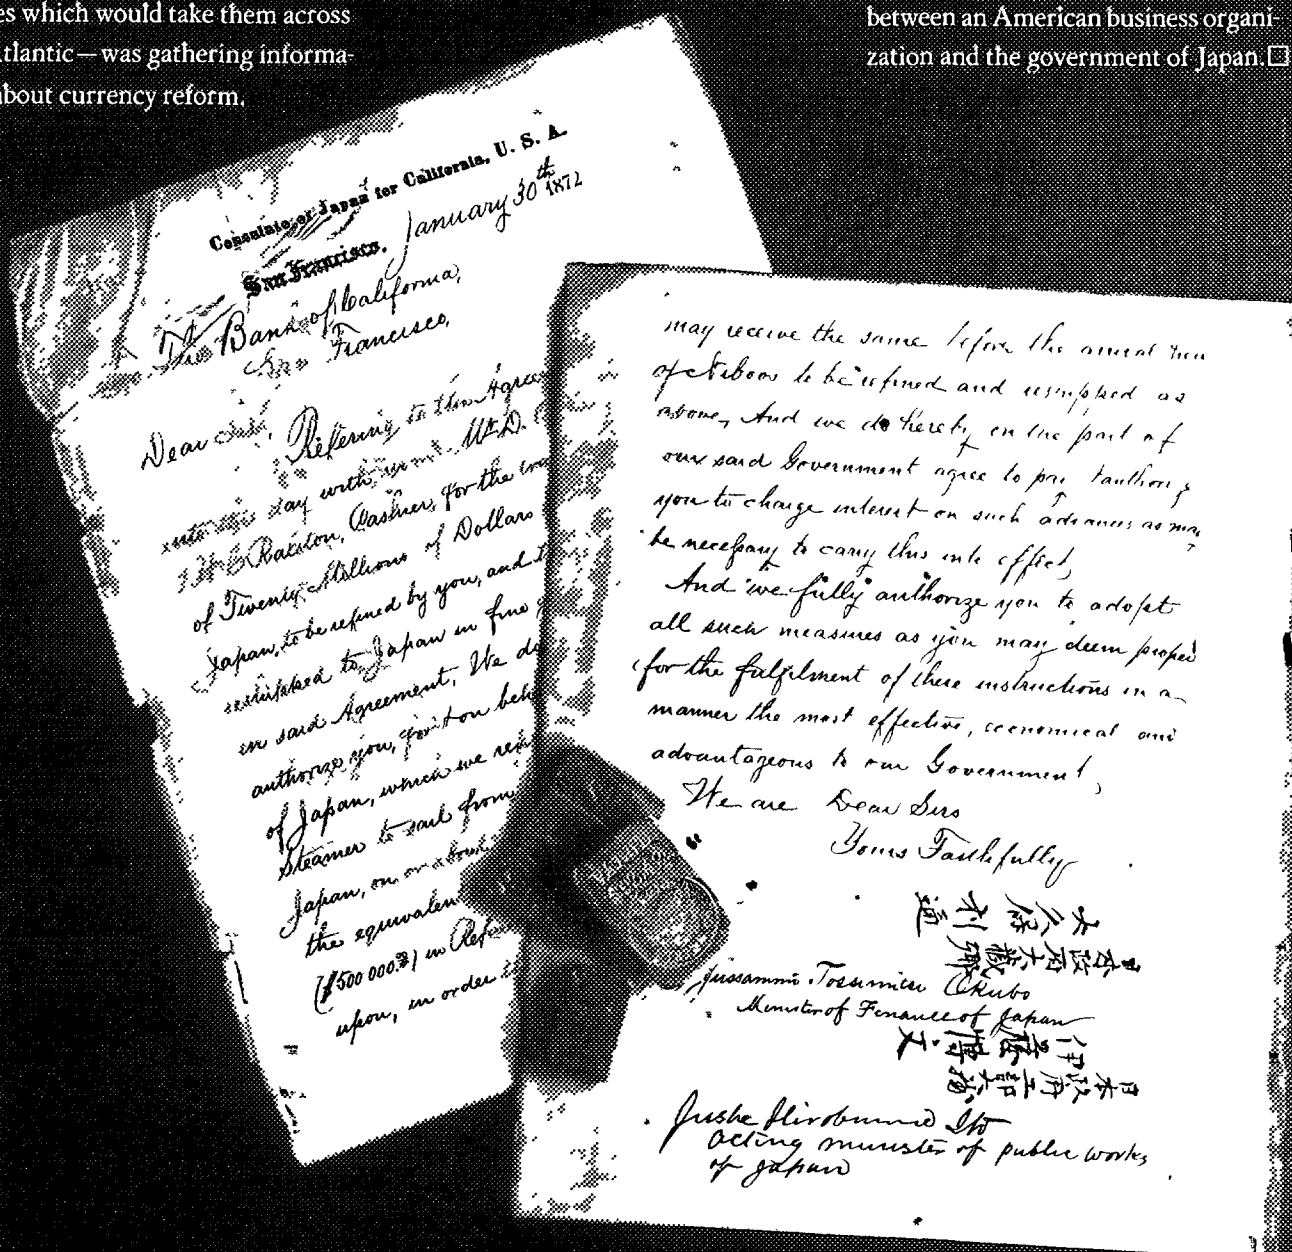 es which would take them across
tlantic—was gathering informa-
about currency reform.
between an American business organi-
zation and the government of Japan.□
Consulate of Japan for California, U. S. A.
San Francisco, January 30th 1872
The Bank of California,
San Francisco,
Dear Sirs,
Refering to the Agree
into this day with
Ralston, Cashier, for the
of Twenty Millions of Dollars
Japan, to be refined by you, and
reshipped to Japan in fine
in said Agreement, We do
authorize you, for & on beh
of Japan, which we
Steamer to sail from
Japan, on or about
the equivalen
($500 000.) in Refin
upon, in order
may receive the same before the arrival here
of Niboos to be refined and reshipped as
above, And we do hereby on the part of
our said Government agree to pay & authorize
you to charge interest on such advances as may
be necessary to carry this into effect,
And we fully authorize you to adopt
all such measures as you may deem proper
for the fulfilment of these instructions in a
manner the most effective, economical and
advantageous to our Government,
We are Dear Sirs
Yours Faithfully
大久保利通
日本政府大蔵卿
Jussammi Tossimitsu Okubo
Minister of Finance of Japan
伊藤博文
日本政府工部大輔
Jushie Hirobumi Ito
Acting minister of public works
of Japan